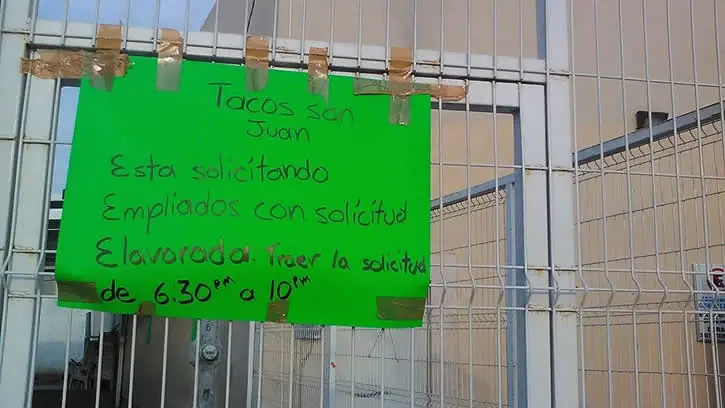 Tacos san
Juan
Esta solicitando
Empliados con solicitud
Elavorada. Traer la solicitud
de 6.30 PM a 10 PM